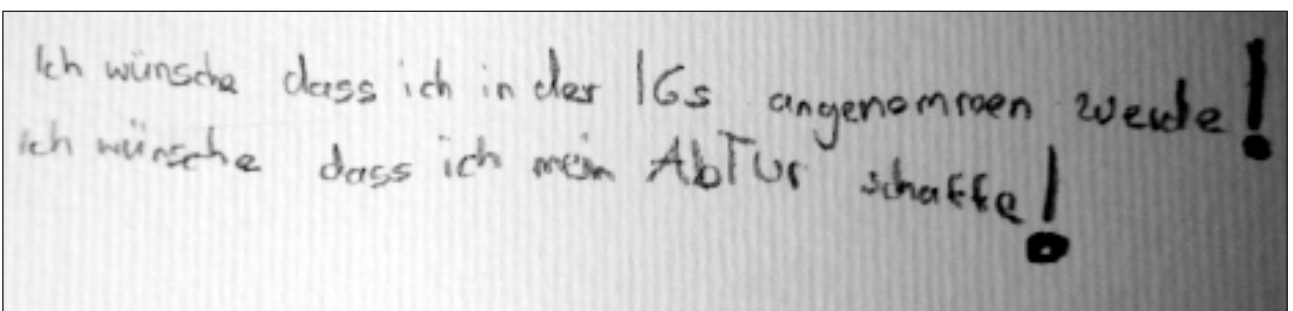 Ich wünsche dass ich in der IGs angenommen werde!
Ich wünsche dass ich mein AbTur schaffe!